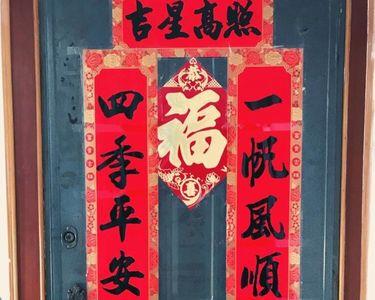 吉星高照
一帆風順
福
四季平安